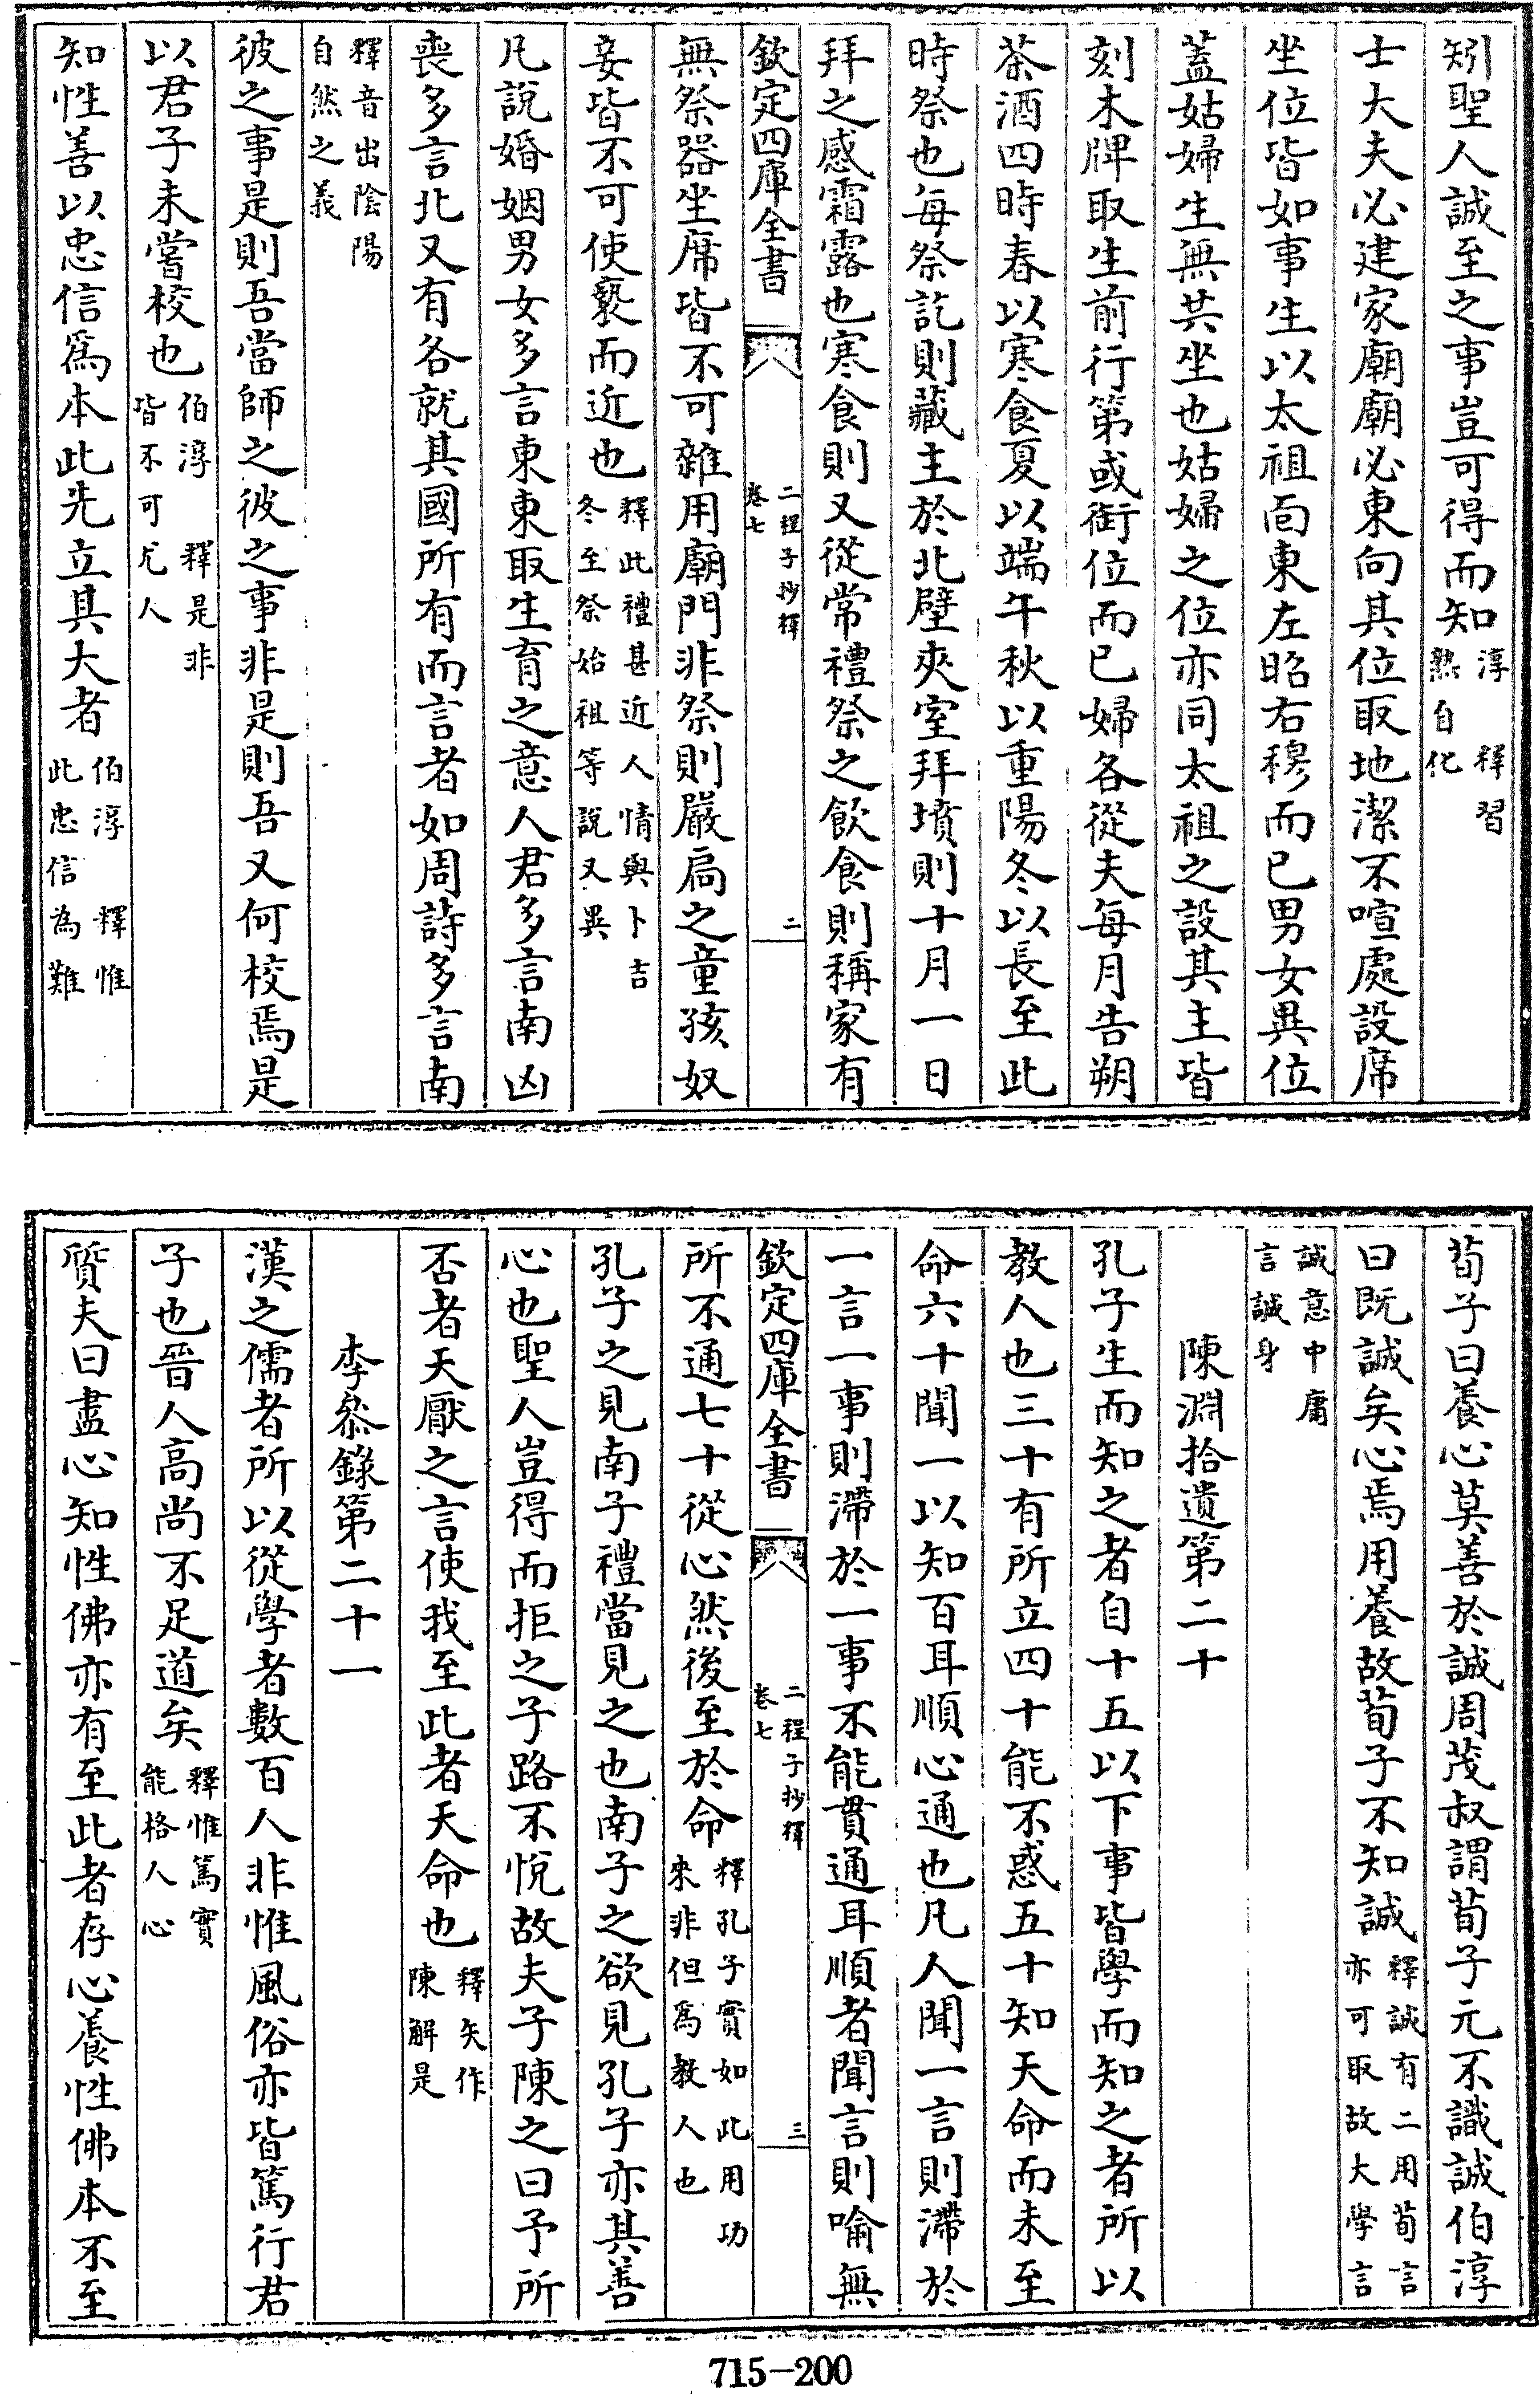 矧聖人誠至之事豈可得而知淳 釋習熟自化
士大夫必建家廟廟必東向其位取地潔不喧處設席
坐位皆如事生以太祖面東左昭右穆而已男女異位
蓋姑婦生無共坐也姑婦之位亦同太祖之設其主皆
刻木牌取生前行第或銜位而已婦各從夫每月告朔
茶酒四時春以寒食夏以端午秋以重陽冬以長至此
時祭也每祭訖則藏主於北壁夾室拜墳則十月一日
拜之感霜露也寒食則又從常禮祭之飲食則稱家有
欽定四庫全書 二程子抄釋 卷七 二
無祭器坐席皆不可雜用廟門非祭則嚴扃之童孩奴
妾皆不可使褻而近也釋此禮甚近人情與卜吉冬至祭始祖等說又異
凡說婚姻男女多言東東取生育之意人君多言南凶
喪多言北又有各就其國所有而言者如周詩多言南
釋音出陰陽自然之義
彼之事是則吾當師之彼之事非是則吾又何校焉是
以君子未嘗校也伯淳 釋是非皆不可尤人
知性善以忠信爲本此先立其大者伯淳 釋惟此忠信為難
荀子曰養心莫善於誠周茂叔謂荀子元不識誠伯淳
曰既誠矣心焉用養故荀子不知誠釋誠有二用荀言亦可取故大學言
誠意中庸言誠身
陳淵拾遺第二十
孔子生而知之者自十五以下事皆學而知之者所以
教人也三十有所立四十能不惑五十知天命而未至
命六十聞一以知百耳順心通也凡人聞一言則滯於
一言一事則滯於一事不能貫通耳順者聞言則喻無
欽定四庫全書 二程子抄釋 卷七 三
所不通七十從心然後至於命釋孔子實如此用功來非但爲教人也
孔子之見南子禮當見之也南子之欲見孔子亦其善
心也聖人豈得而拒之子路不悅故夫子陳之曰予所
否者天厭之言使我至此者天命也釋矢作陳解是
李叅錄第二十一
漢之儒者所以從學者數百人非惟風俗亦皆篤行君
子也晉人高尚不足道矣釋惟篤實能格人心
質夫曰盡心知性佛亦有至此者存心養性佛本不至
715-200